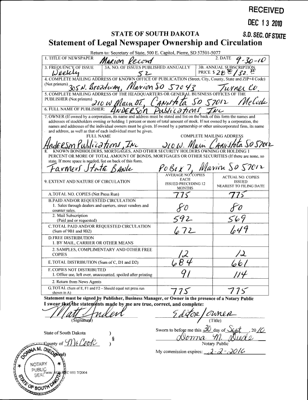 RECEIVED
DEC 13 2010
S.D. SEC. OF STATE
STATE OF SOUTH DAKOTA
Statement of Legal Newspaper Ownership and Circulation
Return to: Secretary of State, 500 E. Capitol, Pierre, SD 57501-5077
1. TITLE OF NEWSPAPER Marion Record 2. DATE 9-30-10
3. FREQUENCY OF ISSUE Weekly 3A. NO. OF ISSUES PUBLISHED ANNUALLY 52 3B. ANNUAL SUBSCRIPTION PRICE
4. COMPLETE MAILING ADDRESS OF KNOWN OFFICE OF PUBLICATION (Street, City, County, State and ZIP+4 Code) (Not printers)
Broadway, Marion SD 57043 Turner Co.
5. COMPLETE MAILING ADDRESS OF THE HEADQUARTERS OR GENERAL BUSINESS OFFICES OF THE PUBLISHER (Not printer)
210 W Main St, Canistota SD 57012 McCook
6. FULL NAME OF PUBLISHER: Anderson Publications, Inc
7. OWNER (If owned by a corporation, its name and address must be stated and also on the back of this form the names and addresses of stockholders owning or holding 1 percent or more of total amount of stock. If not owned by a corporation, the names and addresses of the individual owners must be given. If owned by a partnership or other unincorporated firm, its name and address, as well as that of each individual must be given).
FULL NAME COMPLETE MAILING ADDRESS
Anderson Publications, Inc 210 W. Main Canistota SD 57012
8. KNOWN BONDHOLDERS, MORTGAGEES, AND OTHER SECURITY HOLDERS OWNING OR HOLDING 1 PERCENT OR MORE OF TOTAL AMOUNT OF BONDS, MORTGAGES OR OTHER SECURITIES (If there are none, so state. If more space is needed, list on back of this form).
Farmers State Bank PO Box 7, Marion SD
9. EXTENT AND NATURE OF CIRCULATION
AVERAGE NO. COPIES EACH ISSUED PRECEDING 12 MONTHS
ACTUAL NO. COPIES ISSUED NEAREST TO FILING DATE
A. TOTAL NO. COPIES (Net Press Run) 775 775
B. PAID AND/OR REQUESTED CIRCULATION
1. Sales through dealers and carriers, street vendors and counter sales 80 80
2. Mail Subscription (Paid and/or requested) 592 569
C. TOTAL PAID AND/OR REQUESTED CIRCULATION (Sum of 9B1 and 9B2) 672 649
D. FREE DISTRIBUTION
1. BY MAIL, CARRIER OR OTHER MEANS
2. SAMPLES, COMPLIMENTARY AND OTHER FREE COPIES 12 12
E. TOTAL DISTRIBUTION (Sum of C, D1 and D2) 684 661
F. COPIES NOT DISTRIBUTED
1. Office use, left over, unaccounted, spoiled after printing 91 114
2. Return from News Agents
G. TOTAL (Sum of E, F1 and F2 - Should equal net press run shown in A) 775 775
Statement must be signed by Publisher, Business Manager, or Owner in the presence of a Notary Public
I swear that the statements made by me are true, correct, and complete:
Matt Anderson Editor/owner
(Signature) (Title)
State of South Dakota )
County of McCook )
Sworn to before me this 30 day of Sept, 2010
Notary Public
My commission expires: 2-2-2016
NOTARY
PUBLIC
SEAL
SOUTH DAKOTA